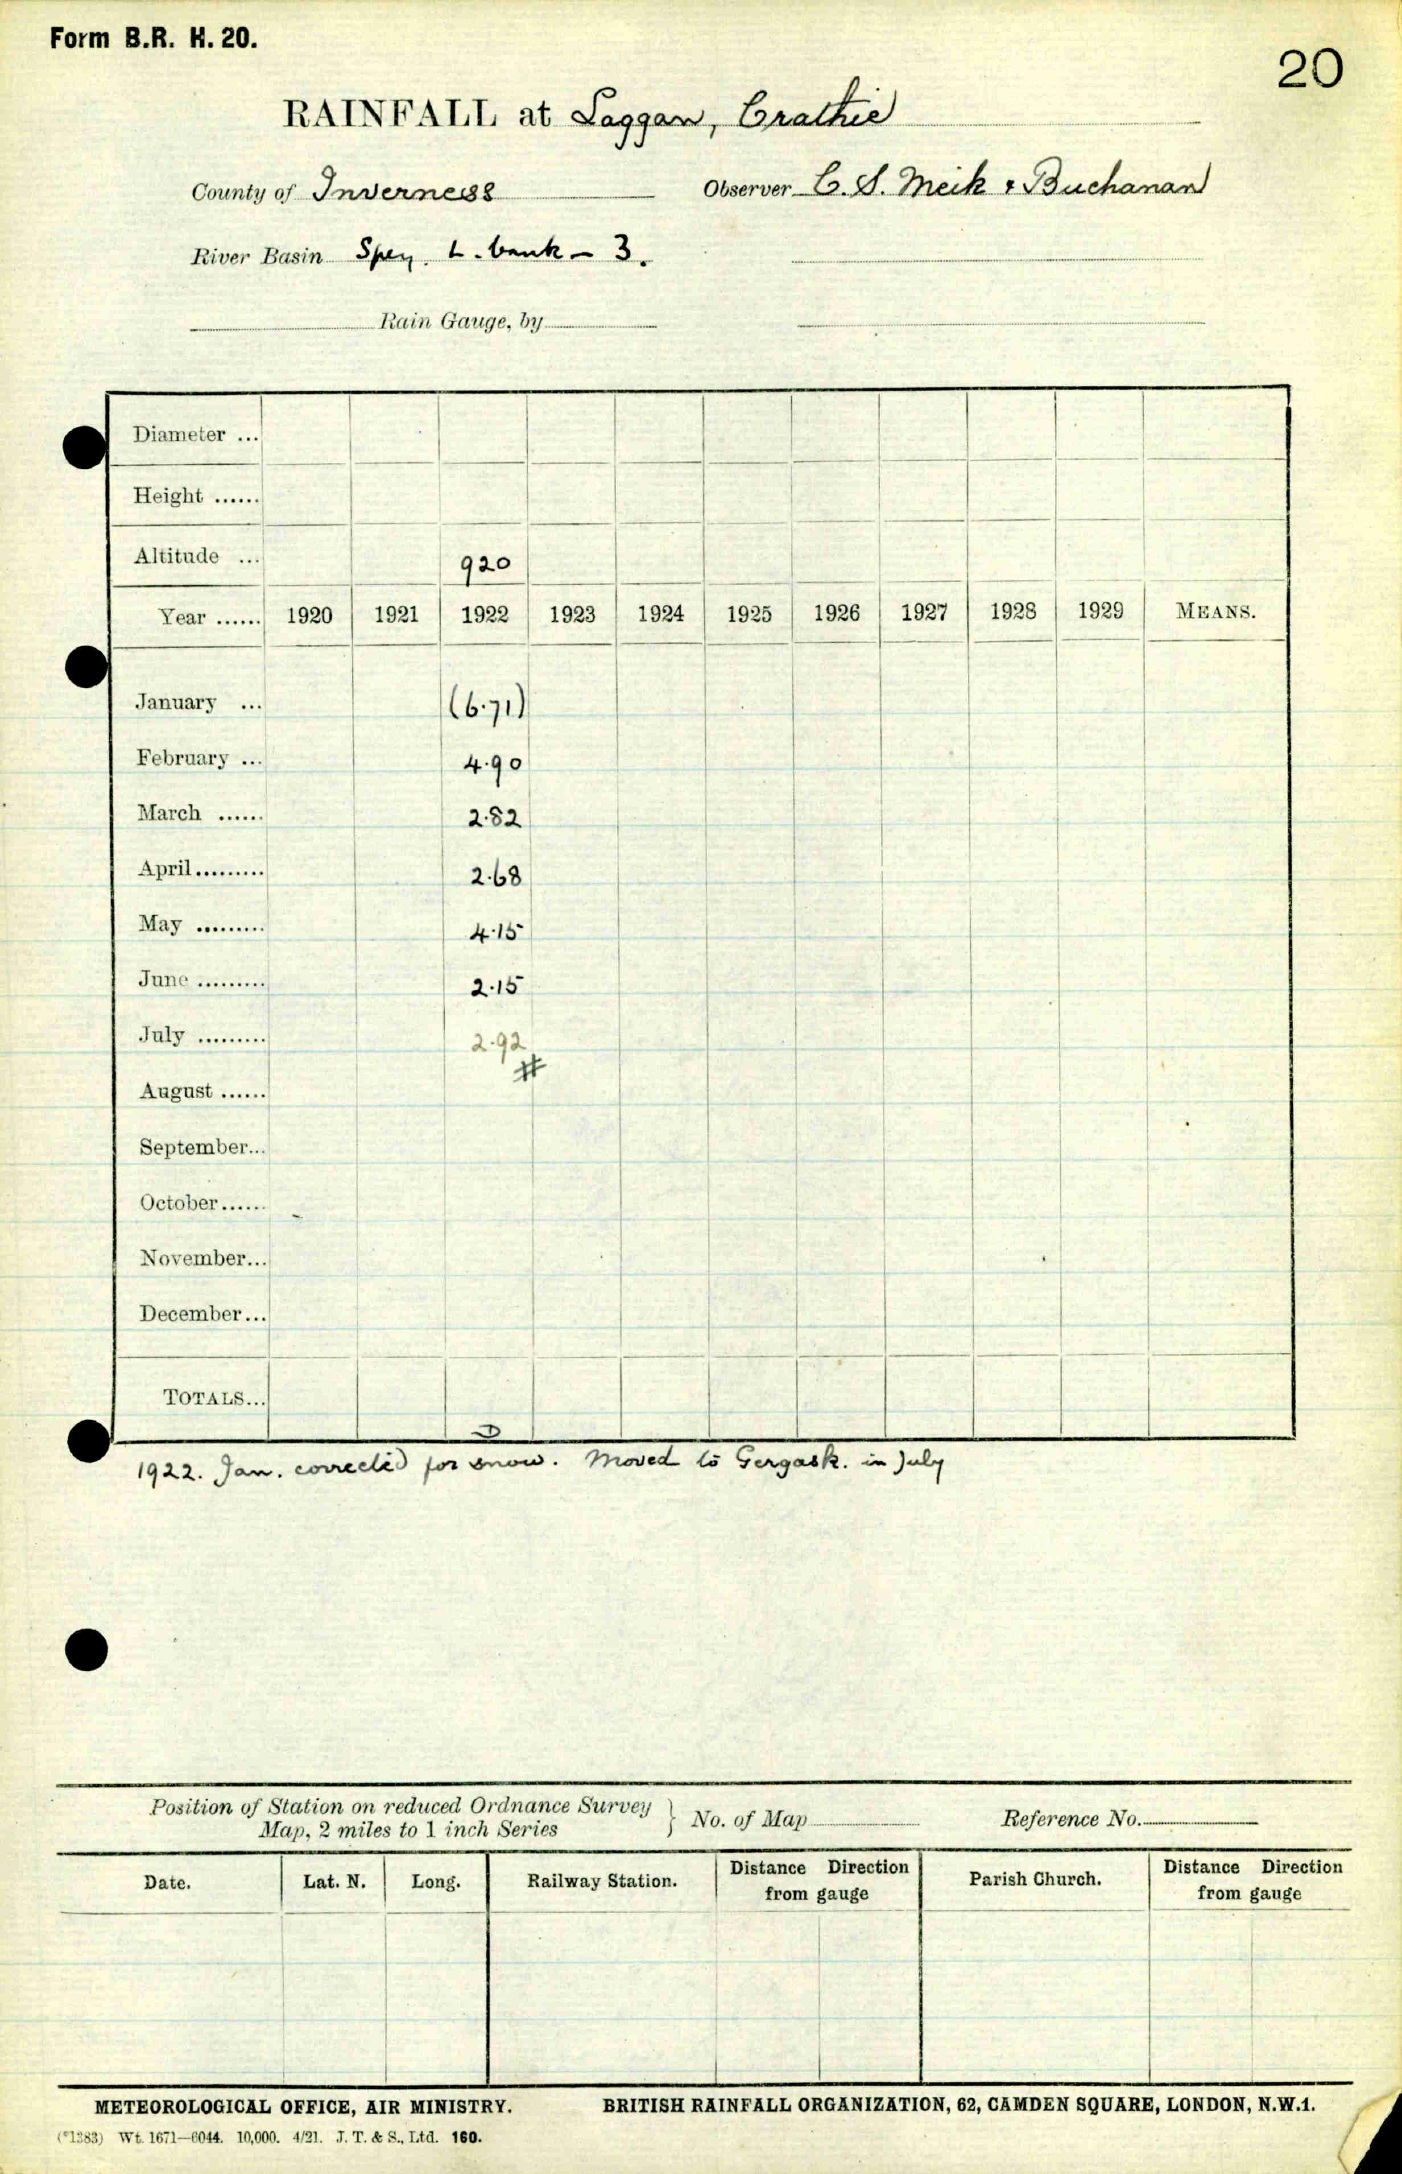 Form B.R. H. 20.
20
RAINFALL at Laggan, Crathie
County of Inverness Observer C. S. Meik & Buchanan
River Basin Spey. L. bank - 3.
Rain Gauge, by
Diameter ...
Height ......
Altitude ... 920
Year ...... 1920 1921 1922 1923 1924 1925 1926 1927 1928 1929 MEANS.
January ... (6.71)
February ... 4.90
March ...... 2.82
April......... 2.68
May ......... 4.15
June ......... 2.15
July ......... 2.92
#
August ......
September...
October......
November...
December...
TOTALS...
1922. Jan. corrected for snow. Moved to Gergask. in July
Position of Station on reduced Ordnance Survey
Map, 2 miles to 1 inch Series } No. of Map Reference No.
Date. Lat. N. Long. Railway Station. Distance Direction from gauge Parish Church. Distance Direction from gauge
METEOROLOGICAL OFFICE, AIR MINISTRY. BRITISH RAINFALL ORGANIZATION, 62, CAMDEN SQUARE, LONDON, N.W.1.
(*1383) Wt. 1671—6044. 10,000. 4/21. J. T. & S., Ltd. 160.